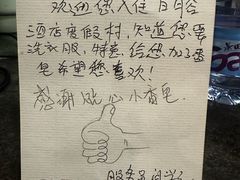 欢迎您入住日月谷
酒店度假村,知道您要
洗衣服,特意给您加了香
皂希望您喜欢!
感谢贴心小香皂
服务员